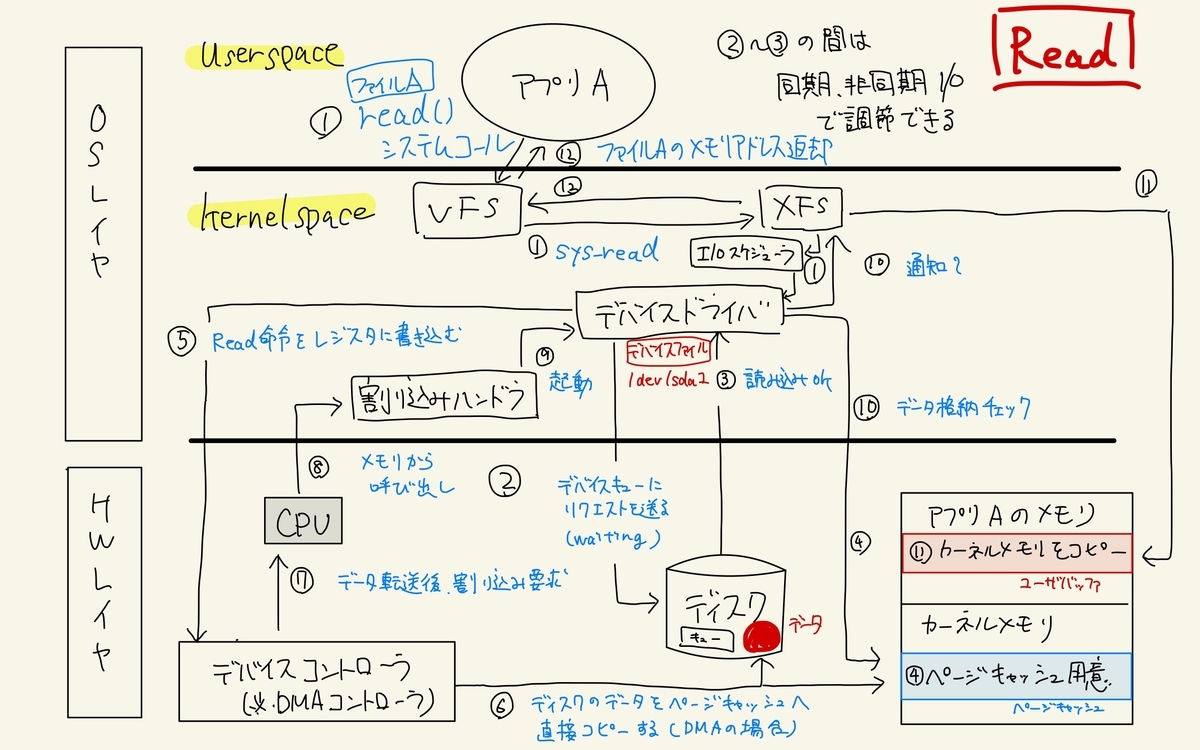 Read
userspace
アプリA
②〜③の間は
同期、非同期I/O
で調節できる
ファイルA
① read()
システムコール
⑫ ファイルAのメモリアドレス返却
OSレイヤ
kernelspace
VFS
⑫
XFS
⑪
① sys_read
I/Oスケジューラ
①
⑩ 通知?
デバイスドライバ
⑤ Read命令をレジスタに書き込む
デバイスファイル
/dev/sda2
③ 読み込みok
⑨
起動
割り込みハンドラ
⑩ データ格納チェック
HWレイヤ
⑧ メモリから
呼び出し
②
デバイスキューに
リクエストを送る
(waiting)
CPU
④
⑦ データ転送後、割り込み要求
ディスク
キュー
データ
アプリAのメモリ
⑪ カーネルメモリをコピー
ユーザバッファ
カーネルメモリ
④ページキャッシュ用意.
ページキャッシュ
デバイスコントローラ
(※.DMAコントローラ)
⑥ ディスクのデータをページキャッシュへ
直接コピーする(DMAの場合)